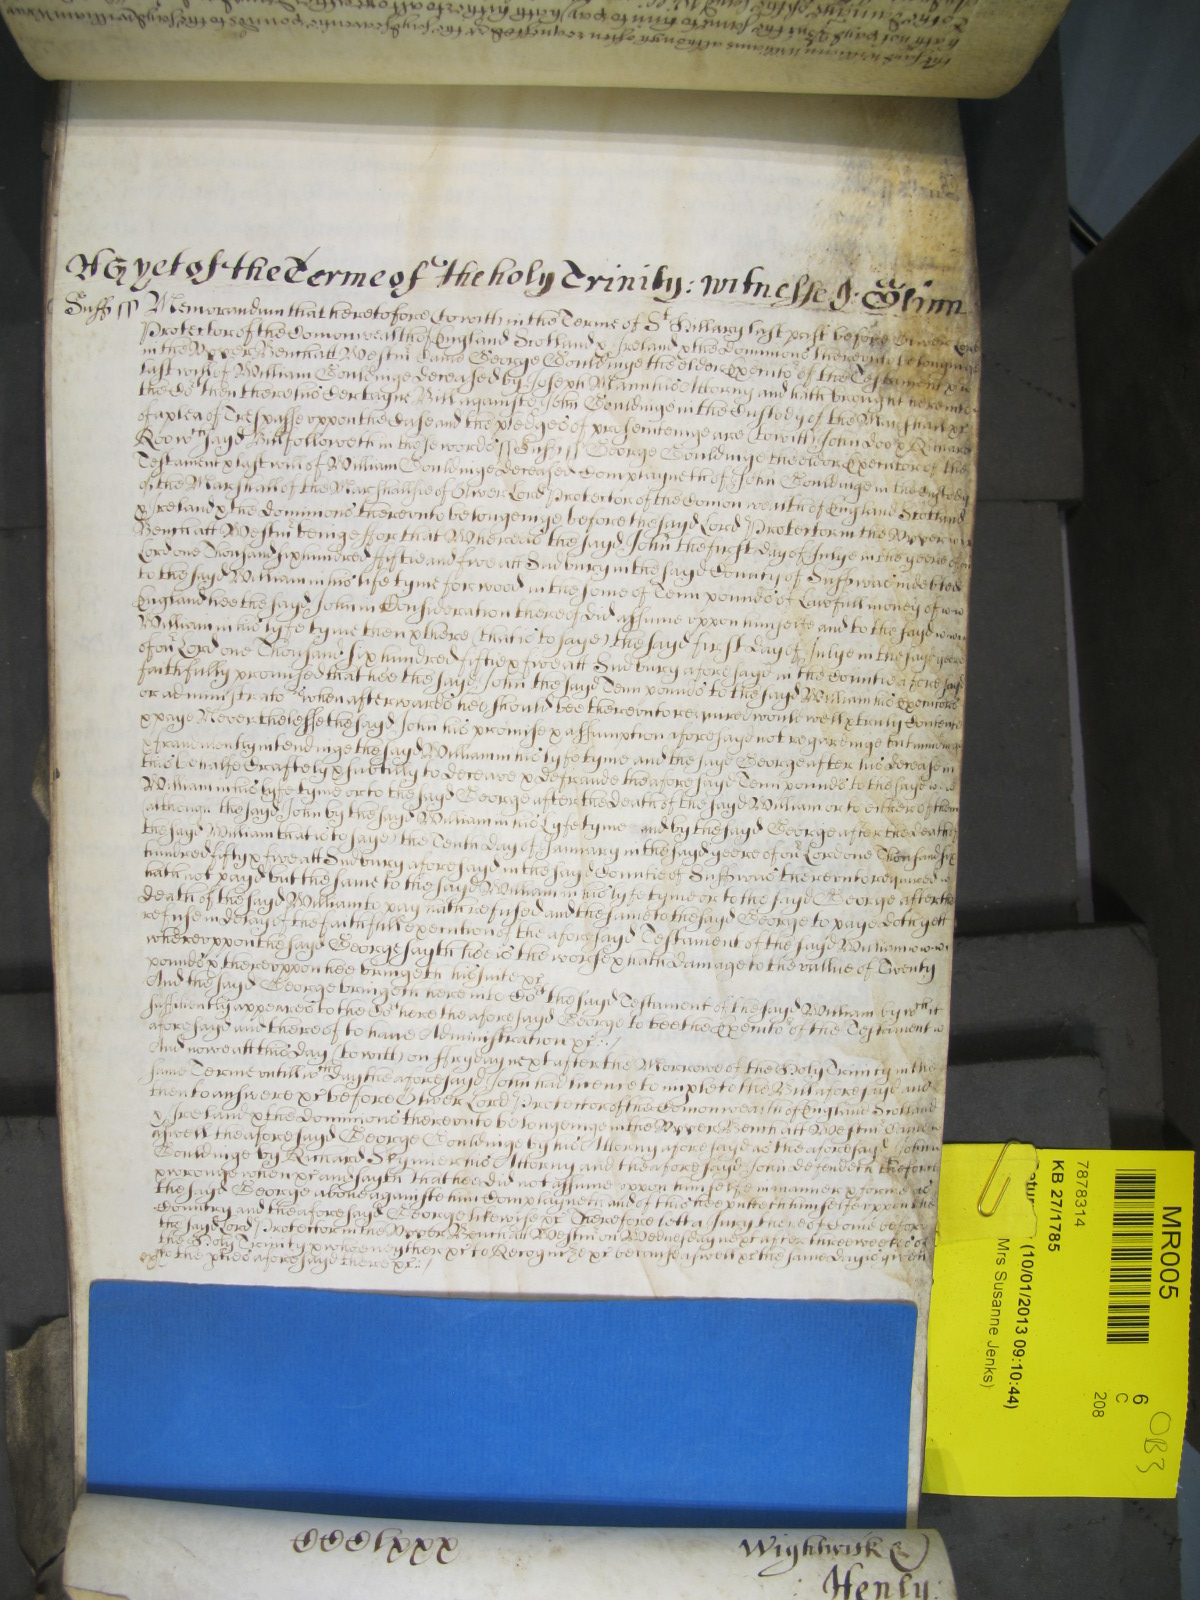 As yet of the Terme of the holy Trinity: witnesse J: Glinn
Suff ss Memorandum that heretofore (to witt) in the Terme of St Hillary last past before Oliver Lord
Protector of the Comonwealth of England Scotland & Ireland & the dominions thereunto belonginge
in the Upper Bench att Westm Came George Gouldinge the elder Executor of the Testament &
last will of William Gouldinge deceased by Joseph Mann his Attorny and hath brought here into
the Cot then there his Certaine Bill againste John Gouldinge in the Custody of the Marshall &c
of a plea of Trespasse uppon the Case and the pledges of prosecuteinge are (to witt) John Doo & Richard
Roo wch sayd Bill followeth in these words ss Suff ss George Gouldinge the elder Executor of the
Testament & last will of William Gouldinge deceased Complayneth of John Gouldinge in the Custody
of the Marshall of the Marshallsie of Oliver Lord Protector of the Comon wealth of England Scotland
& Ireland & the dominions thereunto belongeinge before the sayd Lord Protector in the Upper
Bench att Westm beinge ffor that Whereas the sayd John the first day of Julye in the yeere of our
Lord one Thousand six hundred fiftie and five att Sudbury in the sayd County of Suff was indebted
to the sayd William in his life tyme for wood in the some of Tenn pounds of Lawfull money of
England hee the sayd John in Consideration thereof did assume uppon himselfe and to the sayd
William in his lyfe tyme then & there (that is to saye) the sayd first day of Julye in the sayd yeere
of our Lord one Thousand six hundred fiftie & five att Sudbury afore sayd in the Countie afore sayd
faithfully promised that hee the sayd John the sayd Tenn pounds to the sayd William his executors
or administrators when afterwards hee should bee thereunto required would well & truly Contente
& paye Never thelesse the sayd John his promise & assumption afore sayd not regardinge but
& fraudulently intendinge the sayd William in his lyfe tyme and the sayd George after his decease in
this behalfe Craftely & subtilly to deceave & defraude the afore sayd Tenn pounds to the sayd
William in his lyfe tyme or to the sayd George after the death of the sayd William or to either of them
although the sayd John by the sayd William in his Lyfe tyme and by the sayd George after the death of
the sayd William that is to saye) the Tenth day of January in the sayd yeere of our Lord one Thousand six
hundred fifty & five att Sudbury afore sayd in the sayd Countie of Suff was thereunto required
hath not payd but the same to the sayd William in his lyfe tyme or to the sayd George after the
death of the sayd William to pay hath refused and the same to the sayd George to paye doth yett
refuse in delay of the faithfull execution of the afore sayd Testament of the sayd William
whereuppon the sayd George sayth hee is the worse & hath damage to the vallue of Twenty
pounds & thereuppon hee bringeth his suite &c
And the sayd George bringeth here into Cot the sayd Testament of the sayd William by wch it
sufficiently appeares to the Cot here the afore sayd George to bee the Executor of the Testament
afore sayd and thereof to have Administration &c: /
And now att this day (to witt) on ffryday next after the Morrowe of the Holy Trinity in this
same Terme untill wch day the afore sayd John had licence to imple to the Bill afore sayd and
then to answere &c before Oliver Lord Protector of the Comonwealth of England Scotland
& Ireland & the dominions thereunto belongeinge in the Upper Bench att Westm Came
aswell the afore sayd George Gouldinge by his Attorny afore sayd as the afore sayd John
Gouldinge by Richard Skynner his Attorny and the afore sayd John defendeth the force
& wronge when &c and sayth that hee did not assume uppon himselfe in manner & forme as
the sayd George above againste him Complayneth and of this hee putteth himselfe uppon the
Countrey and the afore sayd George likewise &c Therefore lett a Jury thereof Come before
the sayd Lord Protector in the Upper Bench att Westm on Wednesday next after three weekes of
the Holy Trinity & who neyther &c to Recognize &c because aswell &c the same day is given
to the pties afore sayd there &c: /
CCClxxx
Wightwick &
Henly:
MR005
6
C
208
OB3
7878314
KB 27/1785
(10/01/2013 09:10:44)
Mrs Susanne Jenks)